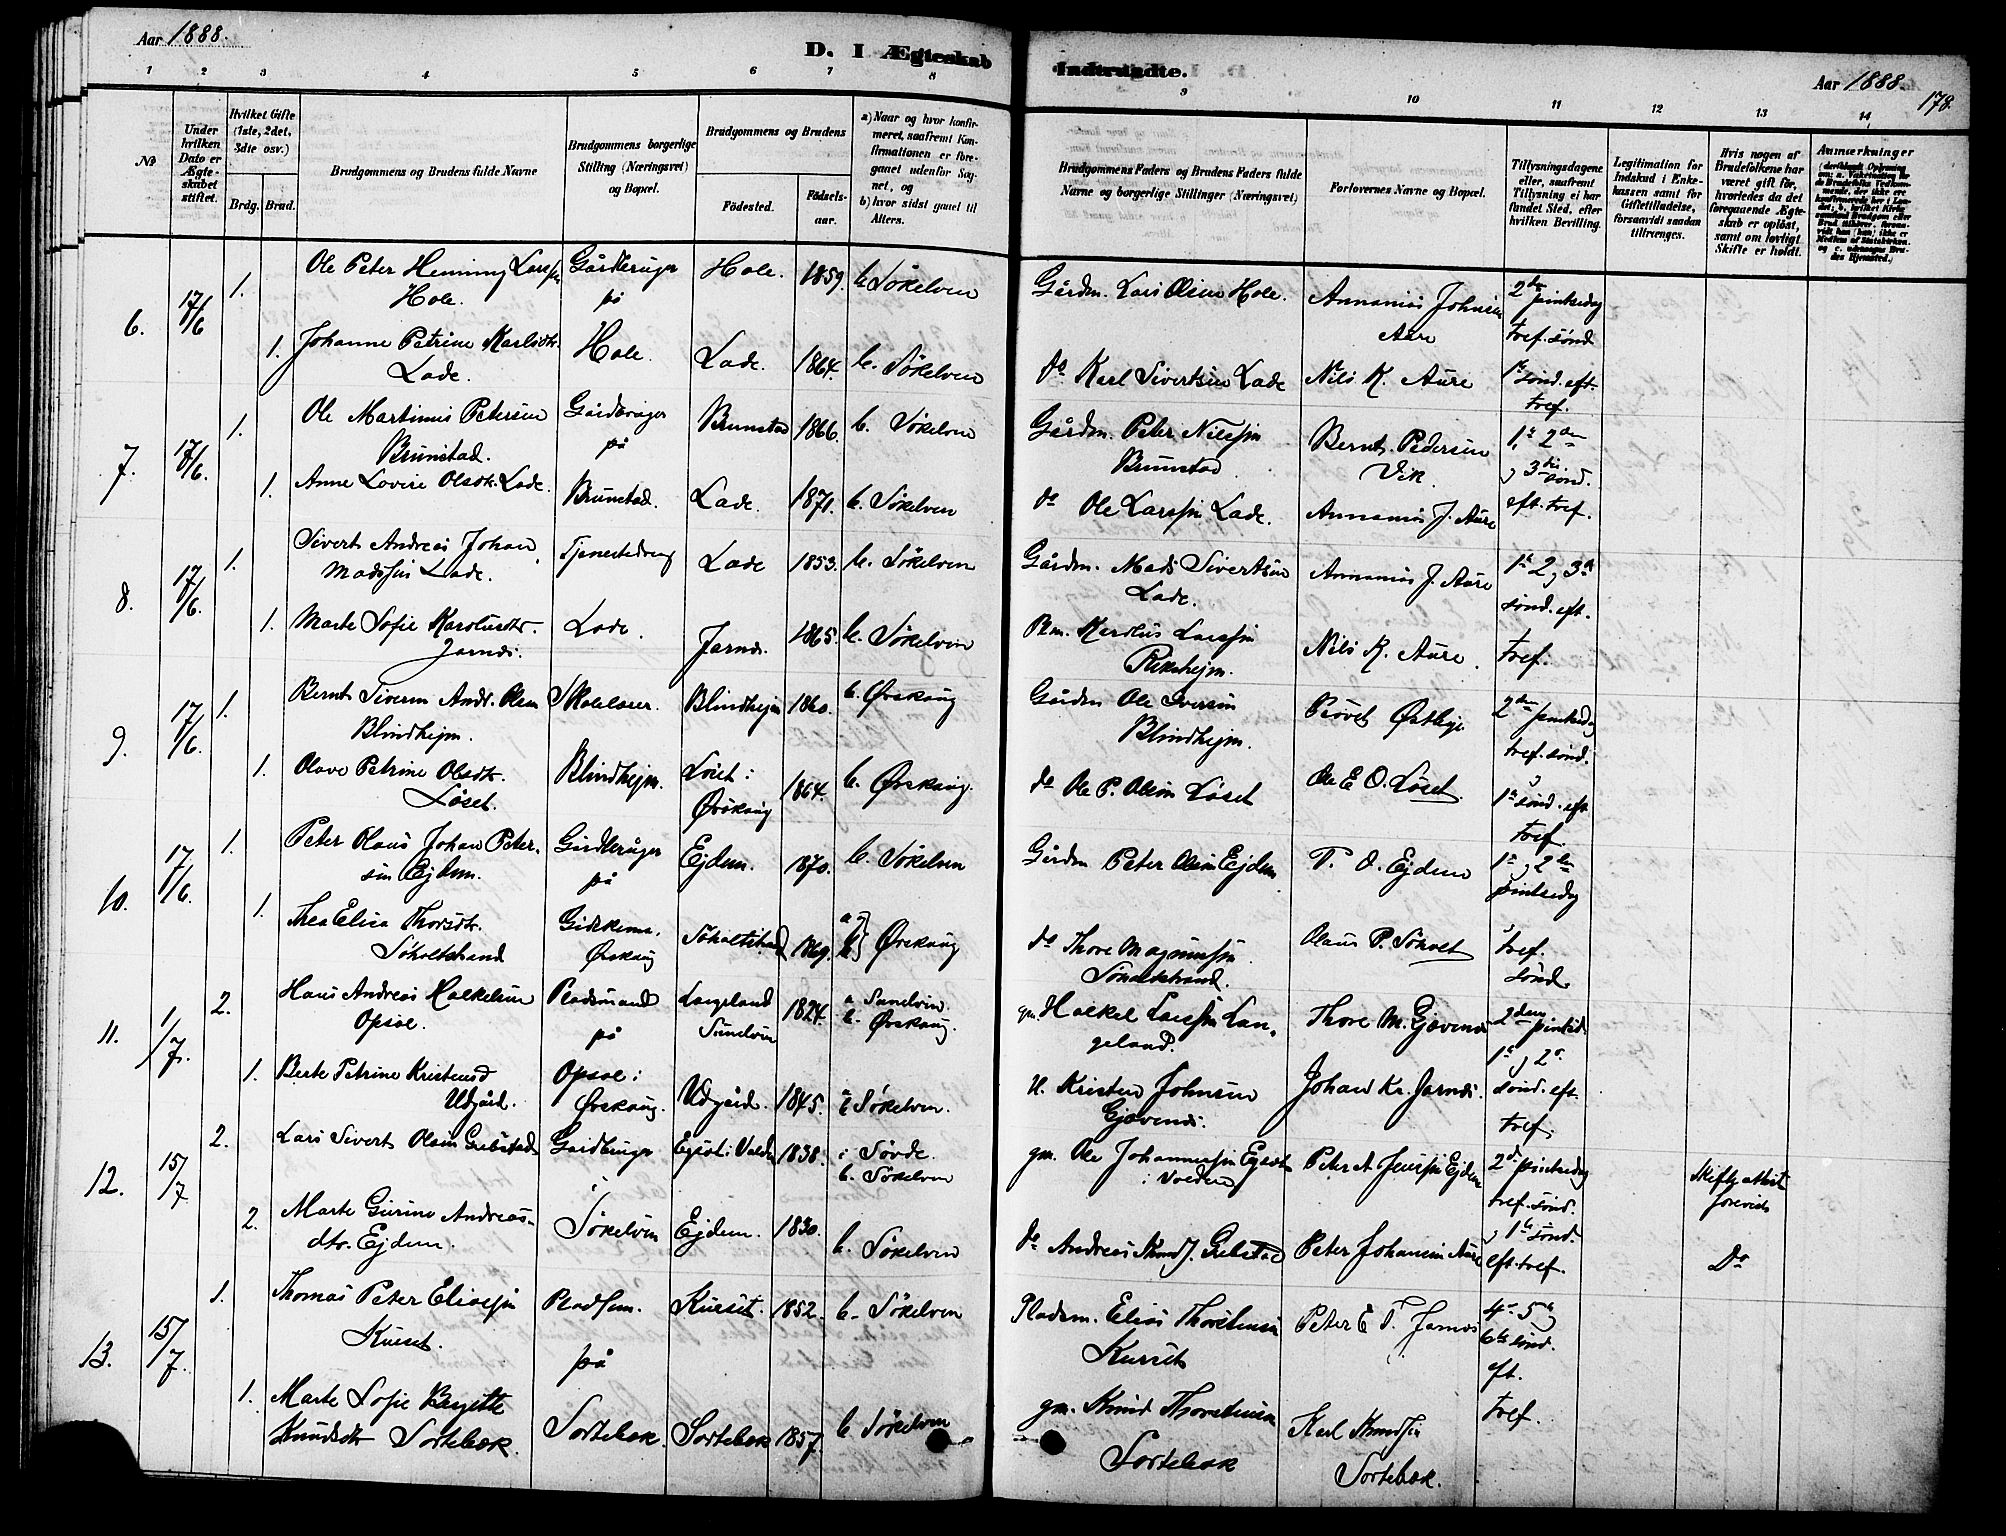 Aar 1888.
D. I Ægteskab
Indtraadte.
Aar 1888.
178.
1 2 3 4 5 6 7 8
9 10 11 12 13 14
No
Under hvilken Dato er Ægteskabet stiftet.
Hvilket Gifte (1ste, 2det, 3die osv.)
Brdg. Brud.
Brudgommens og Brudens fulde Navne
Brudgommens borgerlige Stilling (Næringsvei) og Bopæl.
Brudgommens og Brudens
Födested.
Födselsaar.
a) Naar og hvor konfirmeret, saafremt Konfirmationen er foregaaet udenfor Sognet, og
b) hvor sidst gaaet til Alters.
Brudgommens Faders og Brudens Faders fulde Navne og borgerlige Stillinger (Næringsvei)
Forlovernes Navne og Bopæl.
Tillysningsdagene eller, saafremt Tillysning ei har fundet Sted, efter hvilken Bevilling.
Legitimation for Indskud i Enkekassen samt for Giftetilladelse, forsaavidt saadan tiltrænges.
Hvis nogen af Brudefolkene har været gift før, hvorledes da det foregaaende Ægteskab er opløst, samt om lovligt Skifte er holdt.
Anmærkninger
6. 17/6 1. Ole Peter Henning Larssen Hole. Gårdbruger på Hole. Hole. 1859. b. Søkelven Gårdm. Lars Olsen Hole. Annanias Johnsen Aure 2den pintsedag tref. sønd
1. Johanne Petrine Karlsdtr. Lade. Lade. 1864. b. Søkelven do Karl Sivertsen Lade Nils K. Aure 1e sønd. eft. tref.
7. 17/6 1. Ole Martinus Petersen Brunstad. Gårdbruger på Brunstad. Brunstad 1866. b. Søkelven Gårdm. Peter Nilssen Brunstad Bernt Pedersen Vik. 1e 2den og 3die sønd. eft. tref.
1. Anne Lovise Olsdtr. Lade. Lade. 1871. b. Søkelven do Ole Larssen Lade. Annanias J. Aure
8. 17/6. 1. Sivert Andreas Johan Madssen Lade. Tjenestedreng Lade. Lade 1853. b. Søkelven Gårdm. Mads Sivertsen Lade. Annanias J. Aure 1e 2 og 3e sønd. eft. tref.
1. Marte Sofie Karolusdtr. Jarnes. Jarnes. 1865. b. Søkelven Karolus Larssen Nils K. Aure.
9. 17/6. 1. Bernt Siverin Andr. Olsen Blindhejm. Skolelærer. Blindhejm. Blindhejm 1860. b. Ørskoug Gårdm Ole Iversen Blindhejm. Provst Østbye 2den pintsedag tref. sønd.
1. Olave Petrine Olsdtr. Løset. Løset i Ørskoug 1864. b. Ørskoug. do Ole P. Olsen Løset Ole E. O. Løset. 1e sønd. eft tref.
10. 17/6. 1. Peter Olaus Johan Petersen Ejdem. Gårdbruger på Ejdem. 1870. b. Søkelven Gårdm Peter Olsen Ejdem P. O. Ejdem 1e og 2den pintsedag
1. Thea Elisa Thorsdtr. Søholtstrand Ørskoug Søholtstrand 1869. a og b} Ørskoug do Thore Magnussen Søholtstrand. Olaus P. Søholt tref. sønd.
11. 1/7. 2. Hans Andreas Halkelsen Opsal. Pladsmand på Opsal i Ørskoug. Langeland Sundven 1824. a Sundven. b. Ørskoug. gm Halkel Larssen Langeland. Thore M. Gjævenes 2den pintsd. 1e og 2e sønd. eft tref.
1. Berte Petrine Kristensd Udgård. Udgård. 1845. Søkelven. Kristen Johnsen Gjævenes. Johan Kr. Jarnes.
12. 15/7 2. Lars Sivert Olsen Grebstad Gårdbruger i Søkelven Volden 1838. i Søvde. b. Søkelven gm. Ole Johannessen i Volden Peter A. Jenssen Ejdem 2d. pintsedag tref. sønd. og 1e sønd. eft. tref. Skifteattest forevist
2. Marte Gurine Andreasdtr. Ejdem. Ejdem. 1830. b. Søkelven do Andreas Knudj. Grebstad Peter Johansen Aure Do
13. 15/7. 1. Thomas Peter Eliassen Kurset. Pladsm. på Sortebæk. Kurset. 1852. b. Søkelven Pladsm. Elias Thorstensen Kurset Peter E. T. Jarnes 4e 5e og 6te sønd. eft. tref.
1. Marte Sofie Bergitte Knudsdtr Sortebæk. Sortebæk 1857. b Søkelven gm. Knud Thorstensen Sortebæk Karl Knudsen Sortebæk.